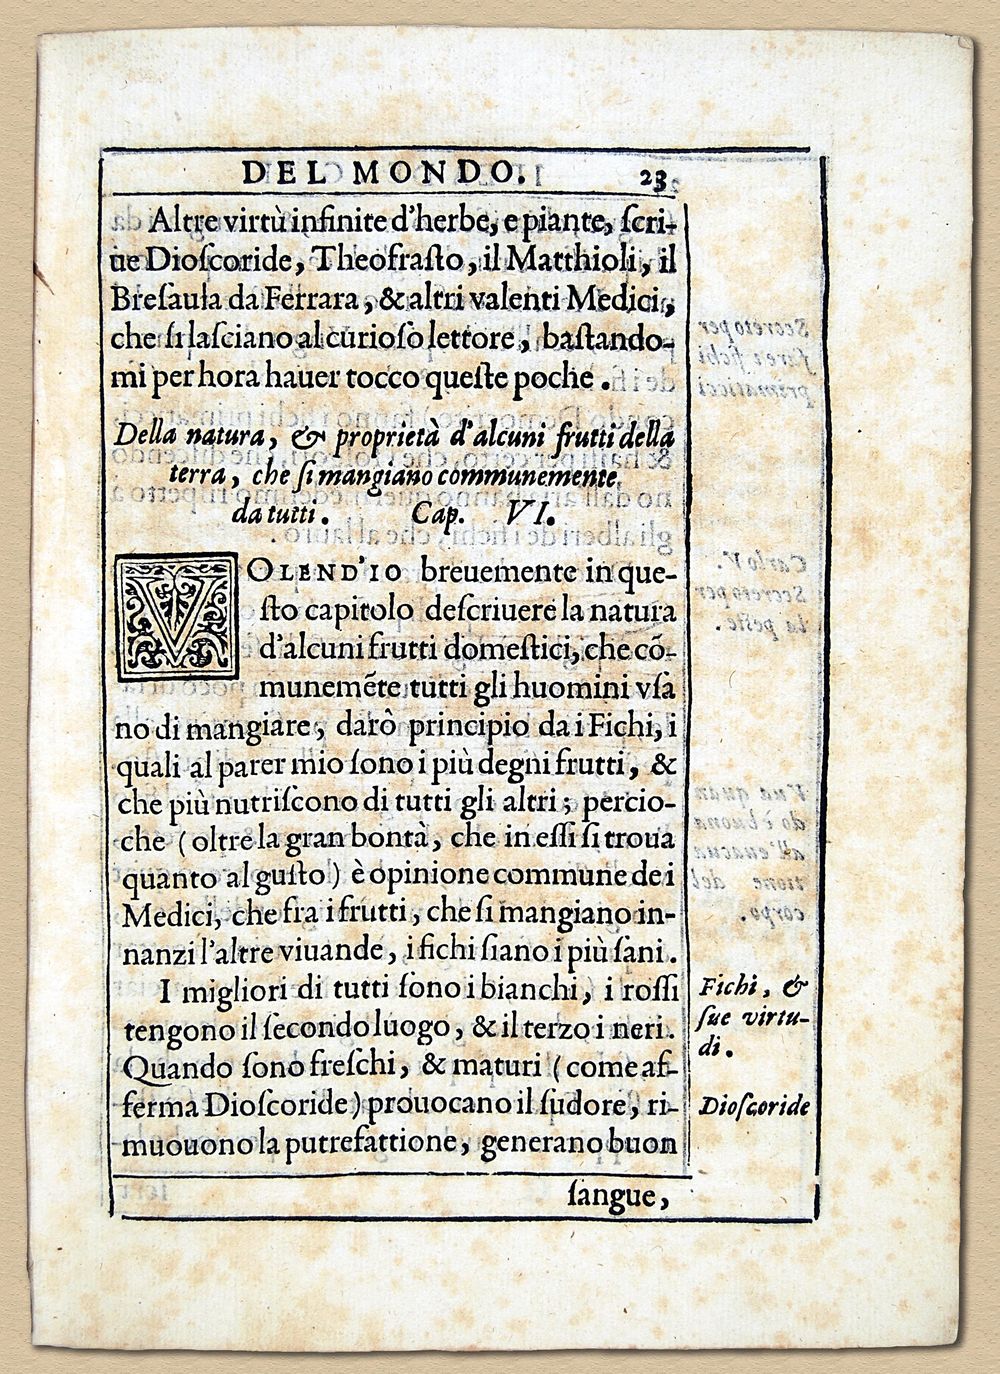 DEL MONDO. 23
Altre virtù infinite d'herbe, e piante, ſcri-
ue Dioſcoride, Theofraſto, il Matthioli, il
Breſaula da Ferrara, & altri valenti Medici,
che ſi laſciano al curioſo lettore, baſtando-
mi per hora hauer tocco queſte poche.
Della natura, & proprietà d'alcuni frutti della
terra, che ſi mangiano communemente
da tutti. Cap. VI.
VOLEND'IO breuemente in que-
ſto capitolo deſcriuere la natura
d'alcuni frutti domeſtici, che cõ-
munemẽte tutti gli huomini vſa
no di mangiare, darò principio da i Fichi, i
quali al parer mio ſono i più degni frutti, &
che più nutriſcono di tutti gli altri; percio-
che (oltre la gran bontà, che in eſſi ſi troua
quanto al guſto) è opinione commune de i
Medici, che fra i frutti, che ſi mangiano in-
nanzi l'altre viuande, i fichi ſiano i più ſani.
I migliori di tutti ſono i bianchi, i roſſi
tengono il ſecondo luogo, & il terzo i neri.
Quando ſono freſchi, & maturi (come af-
ferma Dioſcoride) prouocano il ſudore, ri-
muouono la putrefattione, generano buon
ſangue,
Fichi, &
ſue virtu-
di.
Dioſcoride